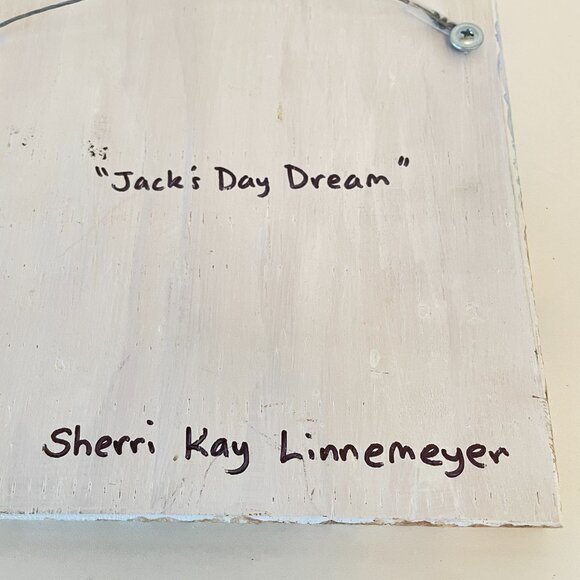 "Jack's Day Dream"
Sherri Kay Linnemeyer